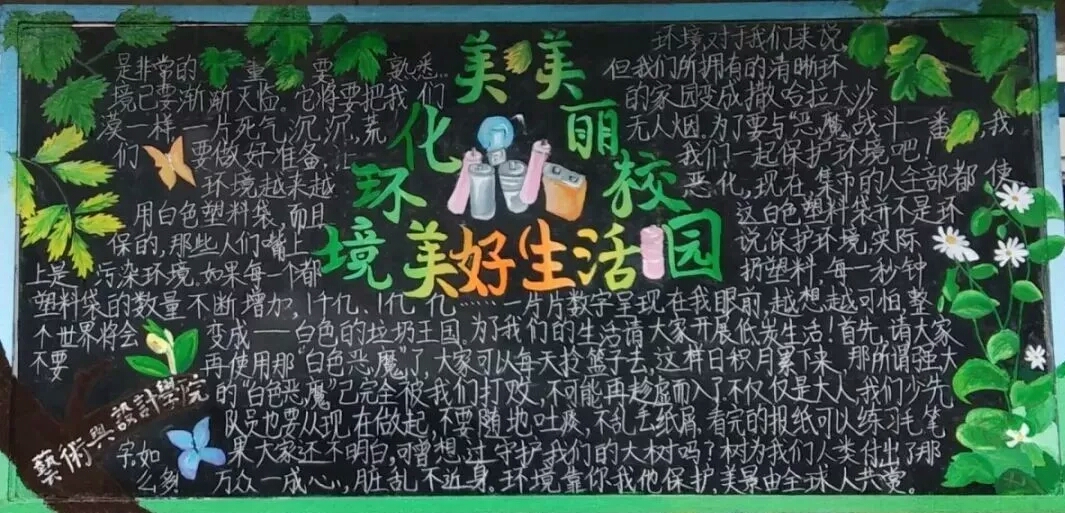 美美
化丽
环校
境美好生活园
环境,对于我们来说
是非常的重要熟悉..但我们所拥有的清晰环
境已要渐渐灭临。它将要把我们的家园变成撒哈拉大沙
漠一样一片死气沉沉,荒无人烟。为了要与"恶魔"战斗一番,我
们要做好准备,我们一起保护环境吧!
环境越来越恶化,现在,集市的人全部都使
用白色塑料袋,而且这白色塑料袋并不是环
保的,那些人们嘴上说保护环境,实际
上是污染环境。如果每一个都扔塑料,每一秒钟
塑料袋的数量不断增加,1千亿、1亿亿……一片片数字呈现在我眼前,越想越可怕整
个世界将会变成——白色的垃圾王国。为了我们的生活请大家开展低炭生活!首先,请大家
不要再使用那"白色恶魔"了,大家可以每天拎篮子去,这样日积月累下来,那所谓强大
的"白色恶魔"已完全被我们打败,不可能再趁虚而入了不仅仅是大人,我们少先
队员也要从现在做起,不要随地吐痰,不乱丢纸屑,看完的报纸可以练习毛笔
字,如果大家还不明白,可曾想过守护我们的大树吗?树为我们人类付出了那
么多万众一成心,脏乱不近身。环境靠你我他保护,美景由全球人共赏。
藝術與設計學院